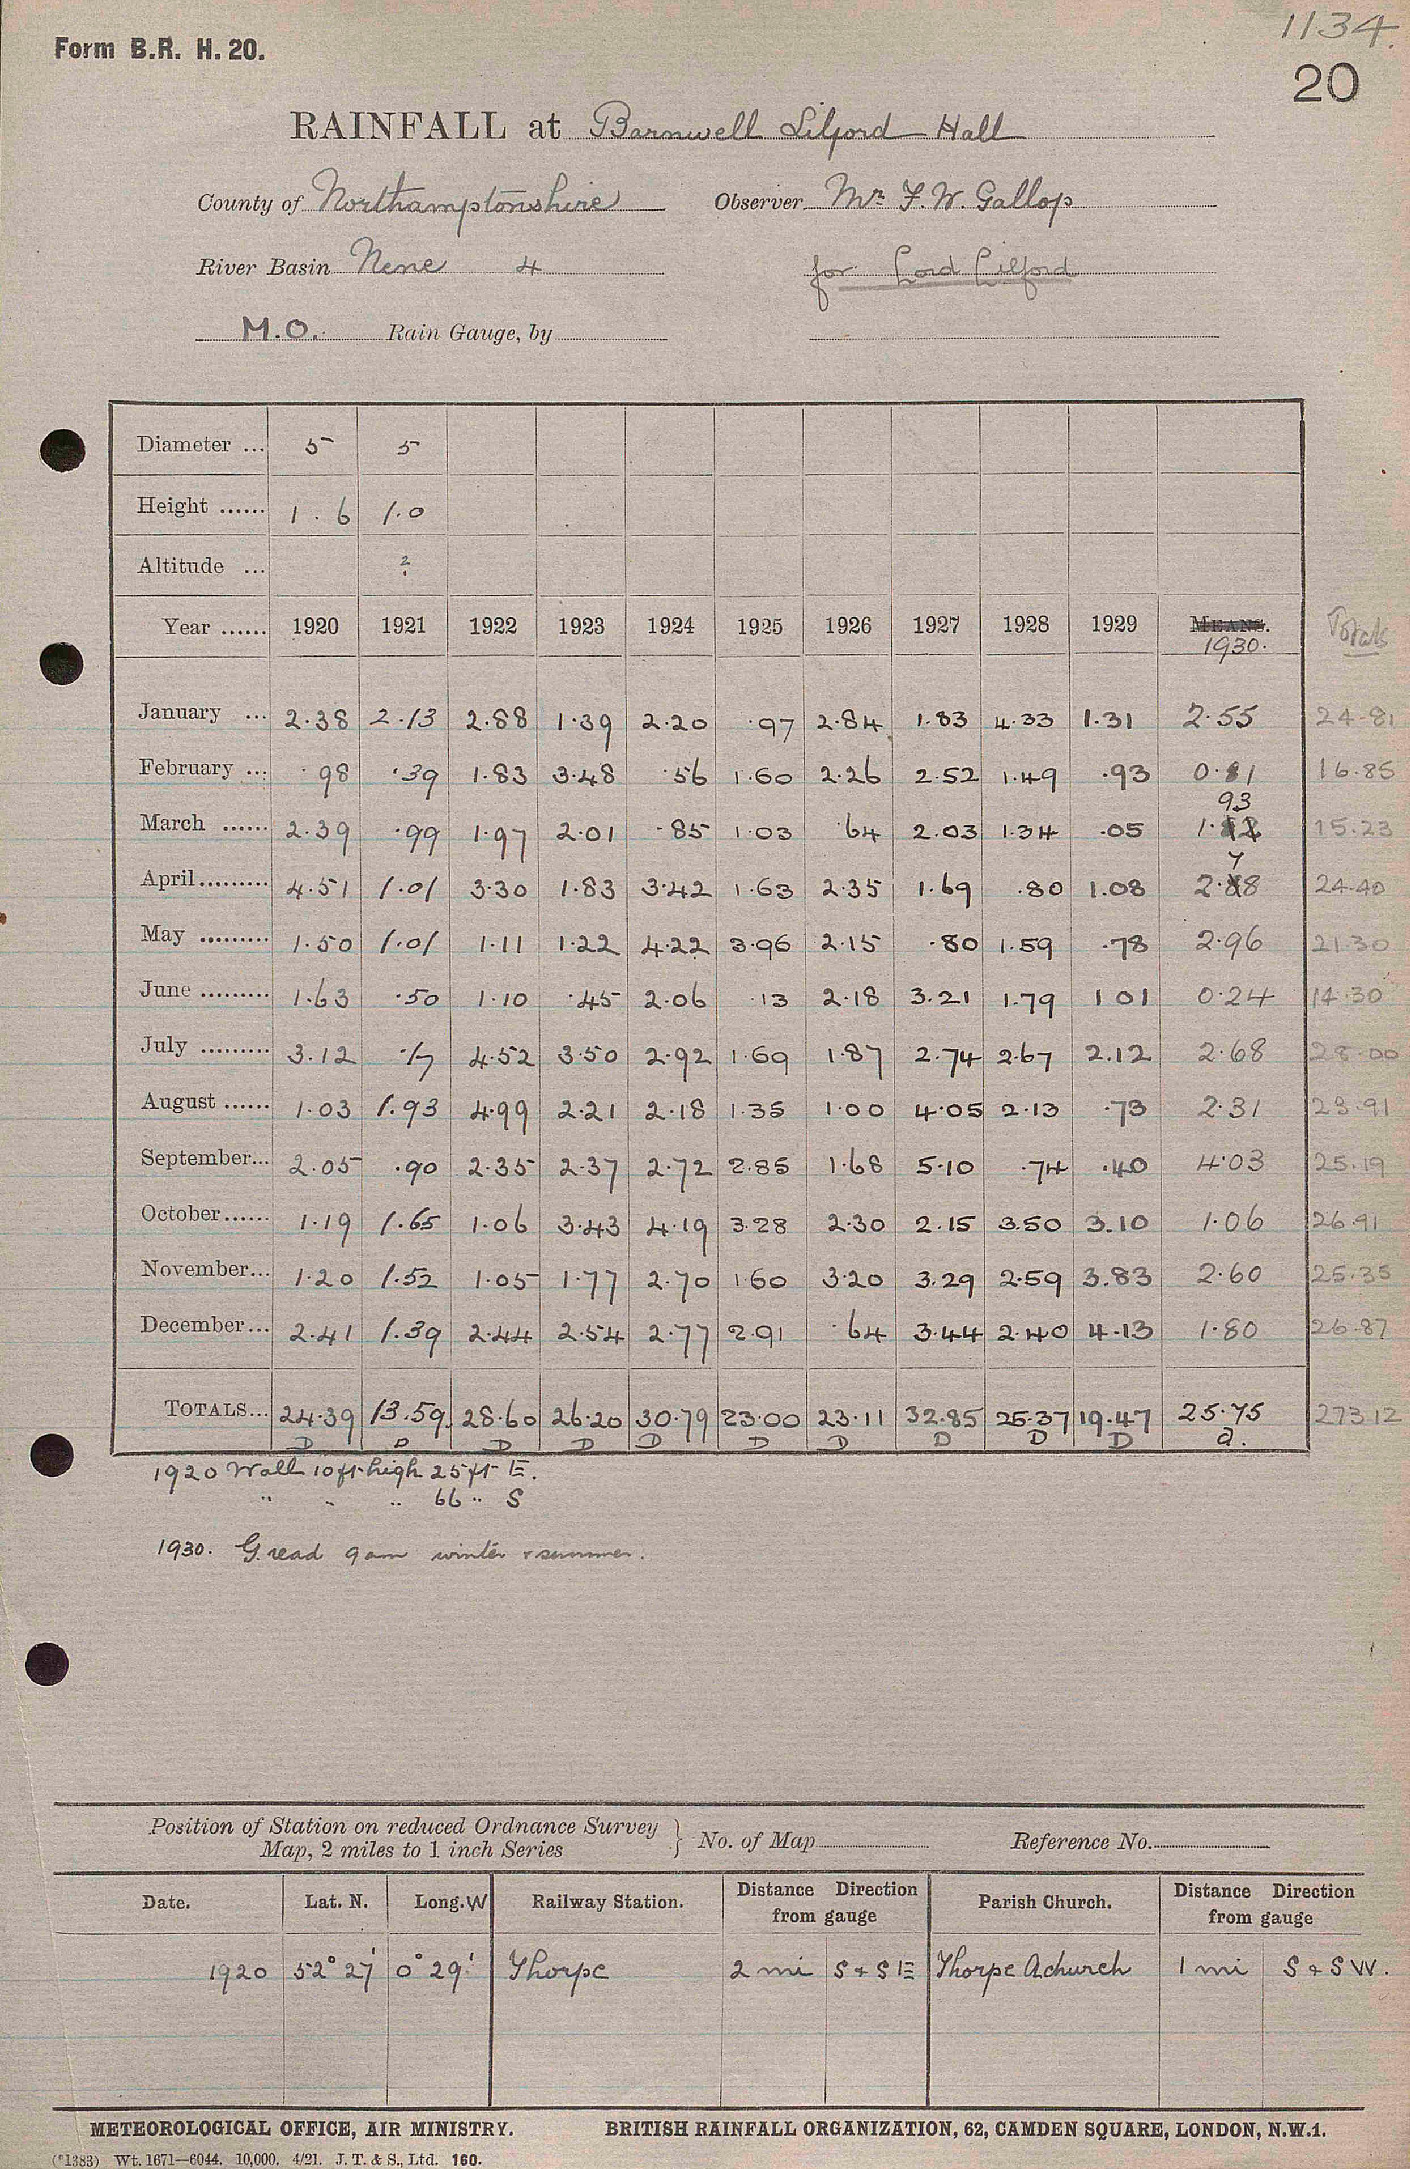 1134.
Form B.R. H. 20.
20
RAINFALL at Barnwell Lilford Hall
County of Northamptonshire Observer Mr F. W. Gallop
River Basin Nene 4 for Lord Lilford
M.O. Rain Gauge, by
Diameter ... 5 5
Height ...... 1.6 1.0
Altitude ... ?
Year ...... 1920 1921 1922 1923 1924 1925 1926 1927 1928 1929 MEANS. 1930. Totals
January ... 2.38 2.13 2.88 1.39 2.20 .97 2.84 1.83 4.33 1.31 2.55 24.81
February ... .98 .39 1.83 3.48 .56 1.60 2.26 2.52 1.49 .93 0.81 16.85
March ...... 2.39 .99 1.97 2.01 .85 1.03 .64 2.03 1.34 .05 1.93 15.23
April ......... 4.51 1.01 3.30 1.83 3.42 1.63 2.35 1.69 .80 1.08 2.78 24.40
May ......... 1.50 1.01 1.11 1.22 4.22 3.96 2.15 .80 1.59 .78 2.96 21.30
June ......... 1.63 .50 1.10 .45 2.06 .13 2.18 3.21 1.79 1 01 0.24 14.30
July ......... 3.12 .17 4.52 3.50 2.92 1.69 1.87 2.74 2.67 2.12 2.68 28.00
August ...... 1.03 1.93 4.99 2.21 2.18 1.35 1.00 4.05 2.13 .73 2.31 23.91
September... 2.05 .90 2.35 2.37 2.72 2.85 1.68 5.10 .74 .40 4.03 25.19
October...... 1.19 1.65 1.06 3.43 4.19 3.28 2.30 2.15 3.50 3.10 1.06 26.91
November... 1.20 1.52 1.05 1.77 2.70 1 60 3.20 3.29 2.59 3.83 2.60 25.35
December... 2.41 1.39 2.44 2.54 2.77 2.91 .64 3.44 2.40 4.13 1.80 26.87
TOTALS... 24.39 13.59 28.60 26.20 30.79 23.00 23.11 32.85 25.37 19.47 25.75 273.12
D D D D D D D D D D d.
1920 Wall 10 ft high 25 ft E.
" " " 66 " S
1930. G. read 9 am winter & summer.
Position of Station on reduced Ordnance Survey
Map, 2 miles to 1 inch Series } No. of Map Reference No.
Date. Lat. N. Long. W Railway Station. Distance Direction from gauge Parish Church. Distance Direction from gauge
1920 52° 27' 0° 29' Thorpe 2 mi S + S E Thorpe Achurch 1 mi S + S W.
METEOROLOGICAL OFFICE, AIR MINISTRY. BRITISH RAINFALL ORGANIZATION, 62, CAMDEN SQUARE, LONDON, N.W.1.
(*1383) Wt. 1671—6044. 10,000. 4/21. J. T. & S., Ltd. 160.